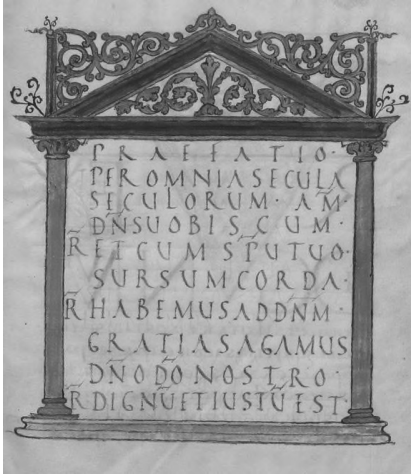 PRAEFATIO·
PER OMNIA SECULA
SECULORUM· AM̅·
DN̅S UOBISCUM·
R̅ ET CUM SP̅U TUO·
SURSUM CORDA·
R̅ HABEMUS AD DNM̅·
GRATIAS AGAMUS
DN̅O D̅O NOSTRO·
R̅ DIGNU̅ ET IUSTU̅ EST·